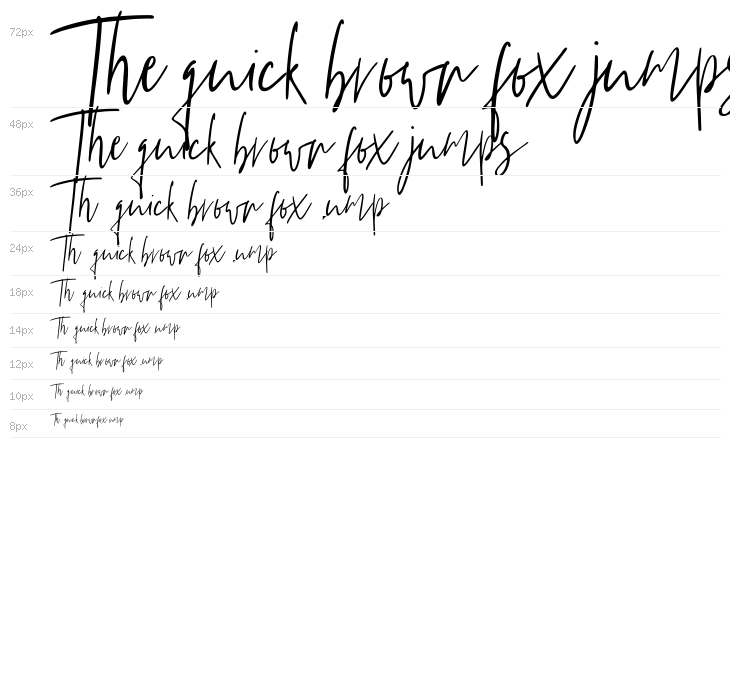 72px The quick brown fox jumps
48px The quick brown fox jumps
36px Th quick brown fox .ump
24px Th quick brown fox .ump
18px Th quick brown fox ump
14px Th quick brown fox ump
12px Th quick brown fox .ump
10px Th quick brown fox ump
8px Th quick brown fox ump